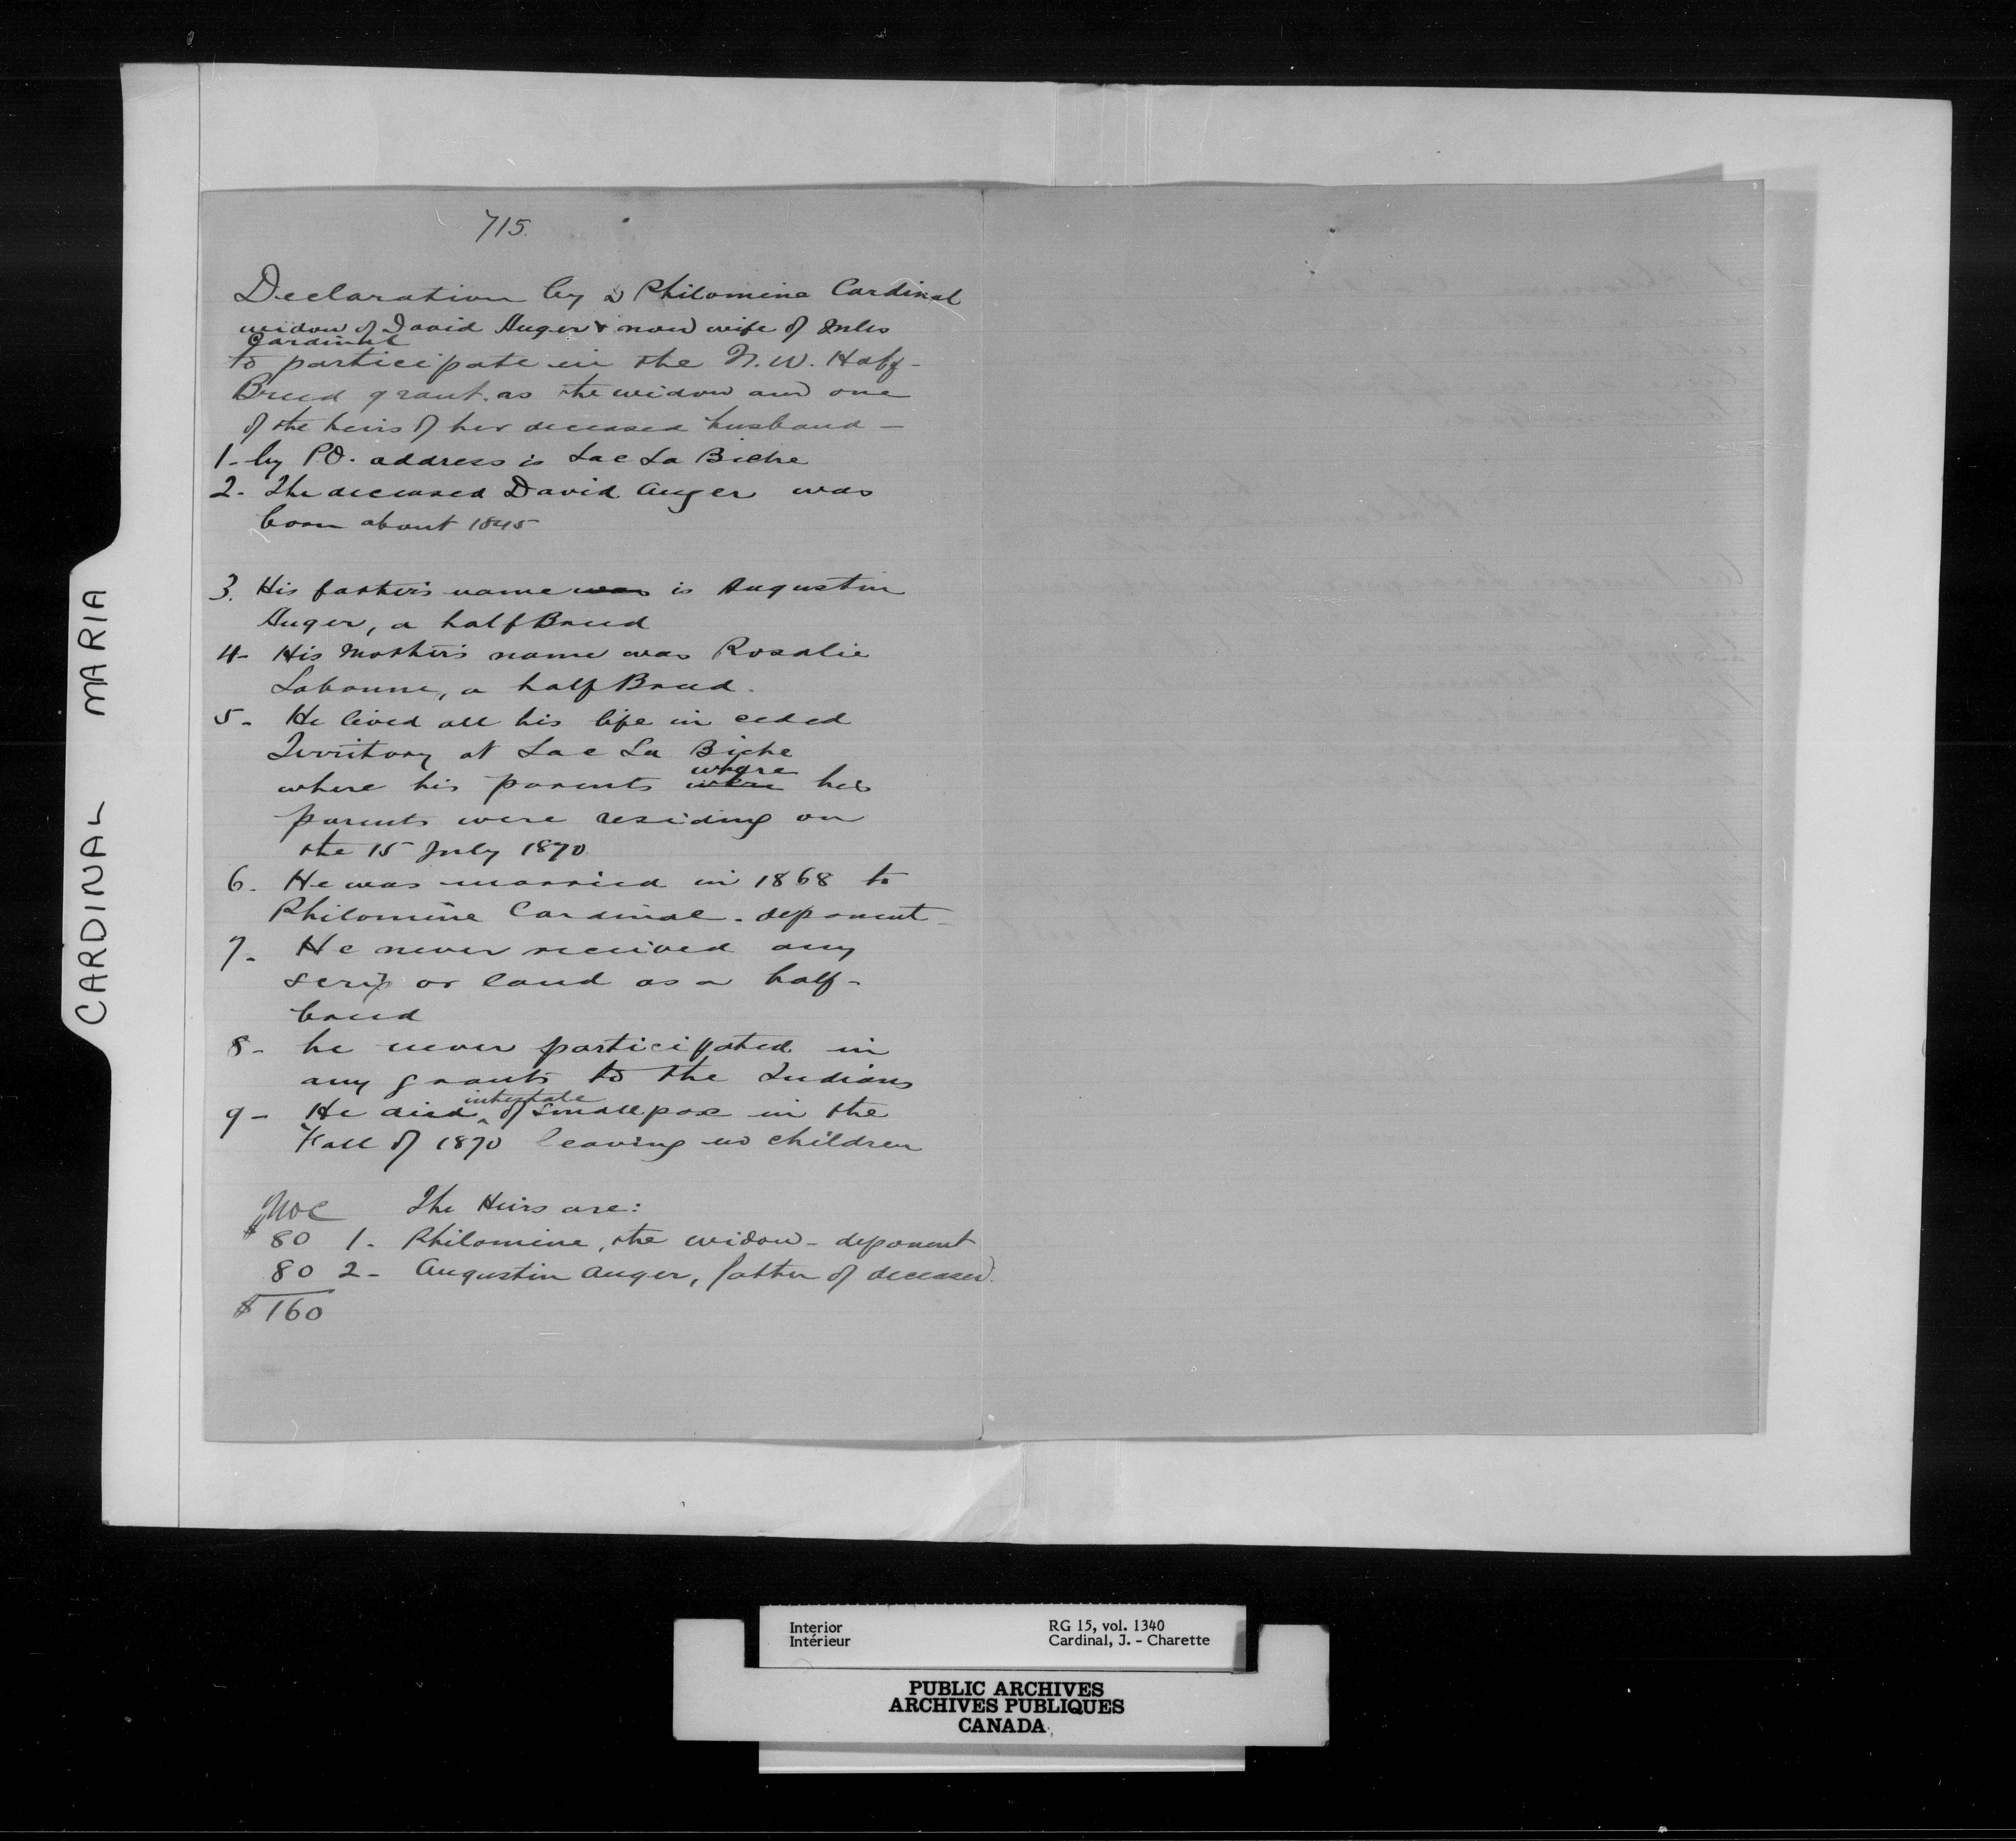 715.
Declaration by Philomine Cardinal
widow of David Auger & now wife of Jules
Cardinal
to participate in the N.W. Half-
Breed grant. as the widow and one
of the heirs of her deceased husband —
1- My P.O. address is Lac La Biche
2- The deceased David Auger was
born about 1845
3. His father's name was is Augustin
Auger, a half Breed
4- His Mother's name was Rosalie
Labonne, a half Breed.
5- He lived all his life in ceded
Territory at Lac La Biche
where his parents where
his
parents were residing on
the 15 July 1870
6. He was married in 1868 to
Philomine Cardinal. deponent —
7- He never received any
scrip or land as a half-
breed
8- he never participated in
any grants to the Indians
9- He died intestate of smallpox in the
Fall of 1870 leaving no children
The Heirs are:
$80 1- Philomine, the widow - deponent
80 2- Augustin Auger, father of deceased.
$160
CARDINAL MARIA
Interior
Intérieur
RG 15, vol. 1340
Cardinal, J. - Charette
PUBLIC ARCHIVES
ARCHIVES PUBLIQUES
CANADA